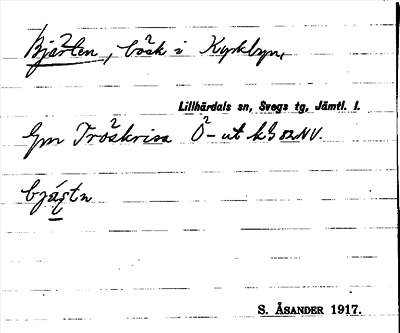 Bjästen, bäck i Kyrkbyn,
Lillhärdals sn, Svegs tg, Jämtl. l.
Gm Tröskrisa Ö-ut kb 82NV.
bjästn
S. ÅSANDER 1917.